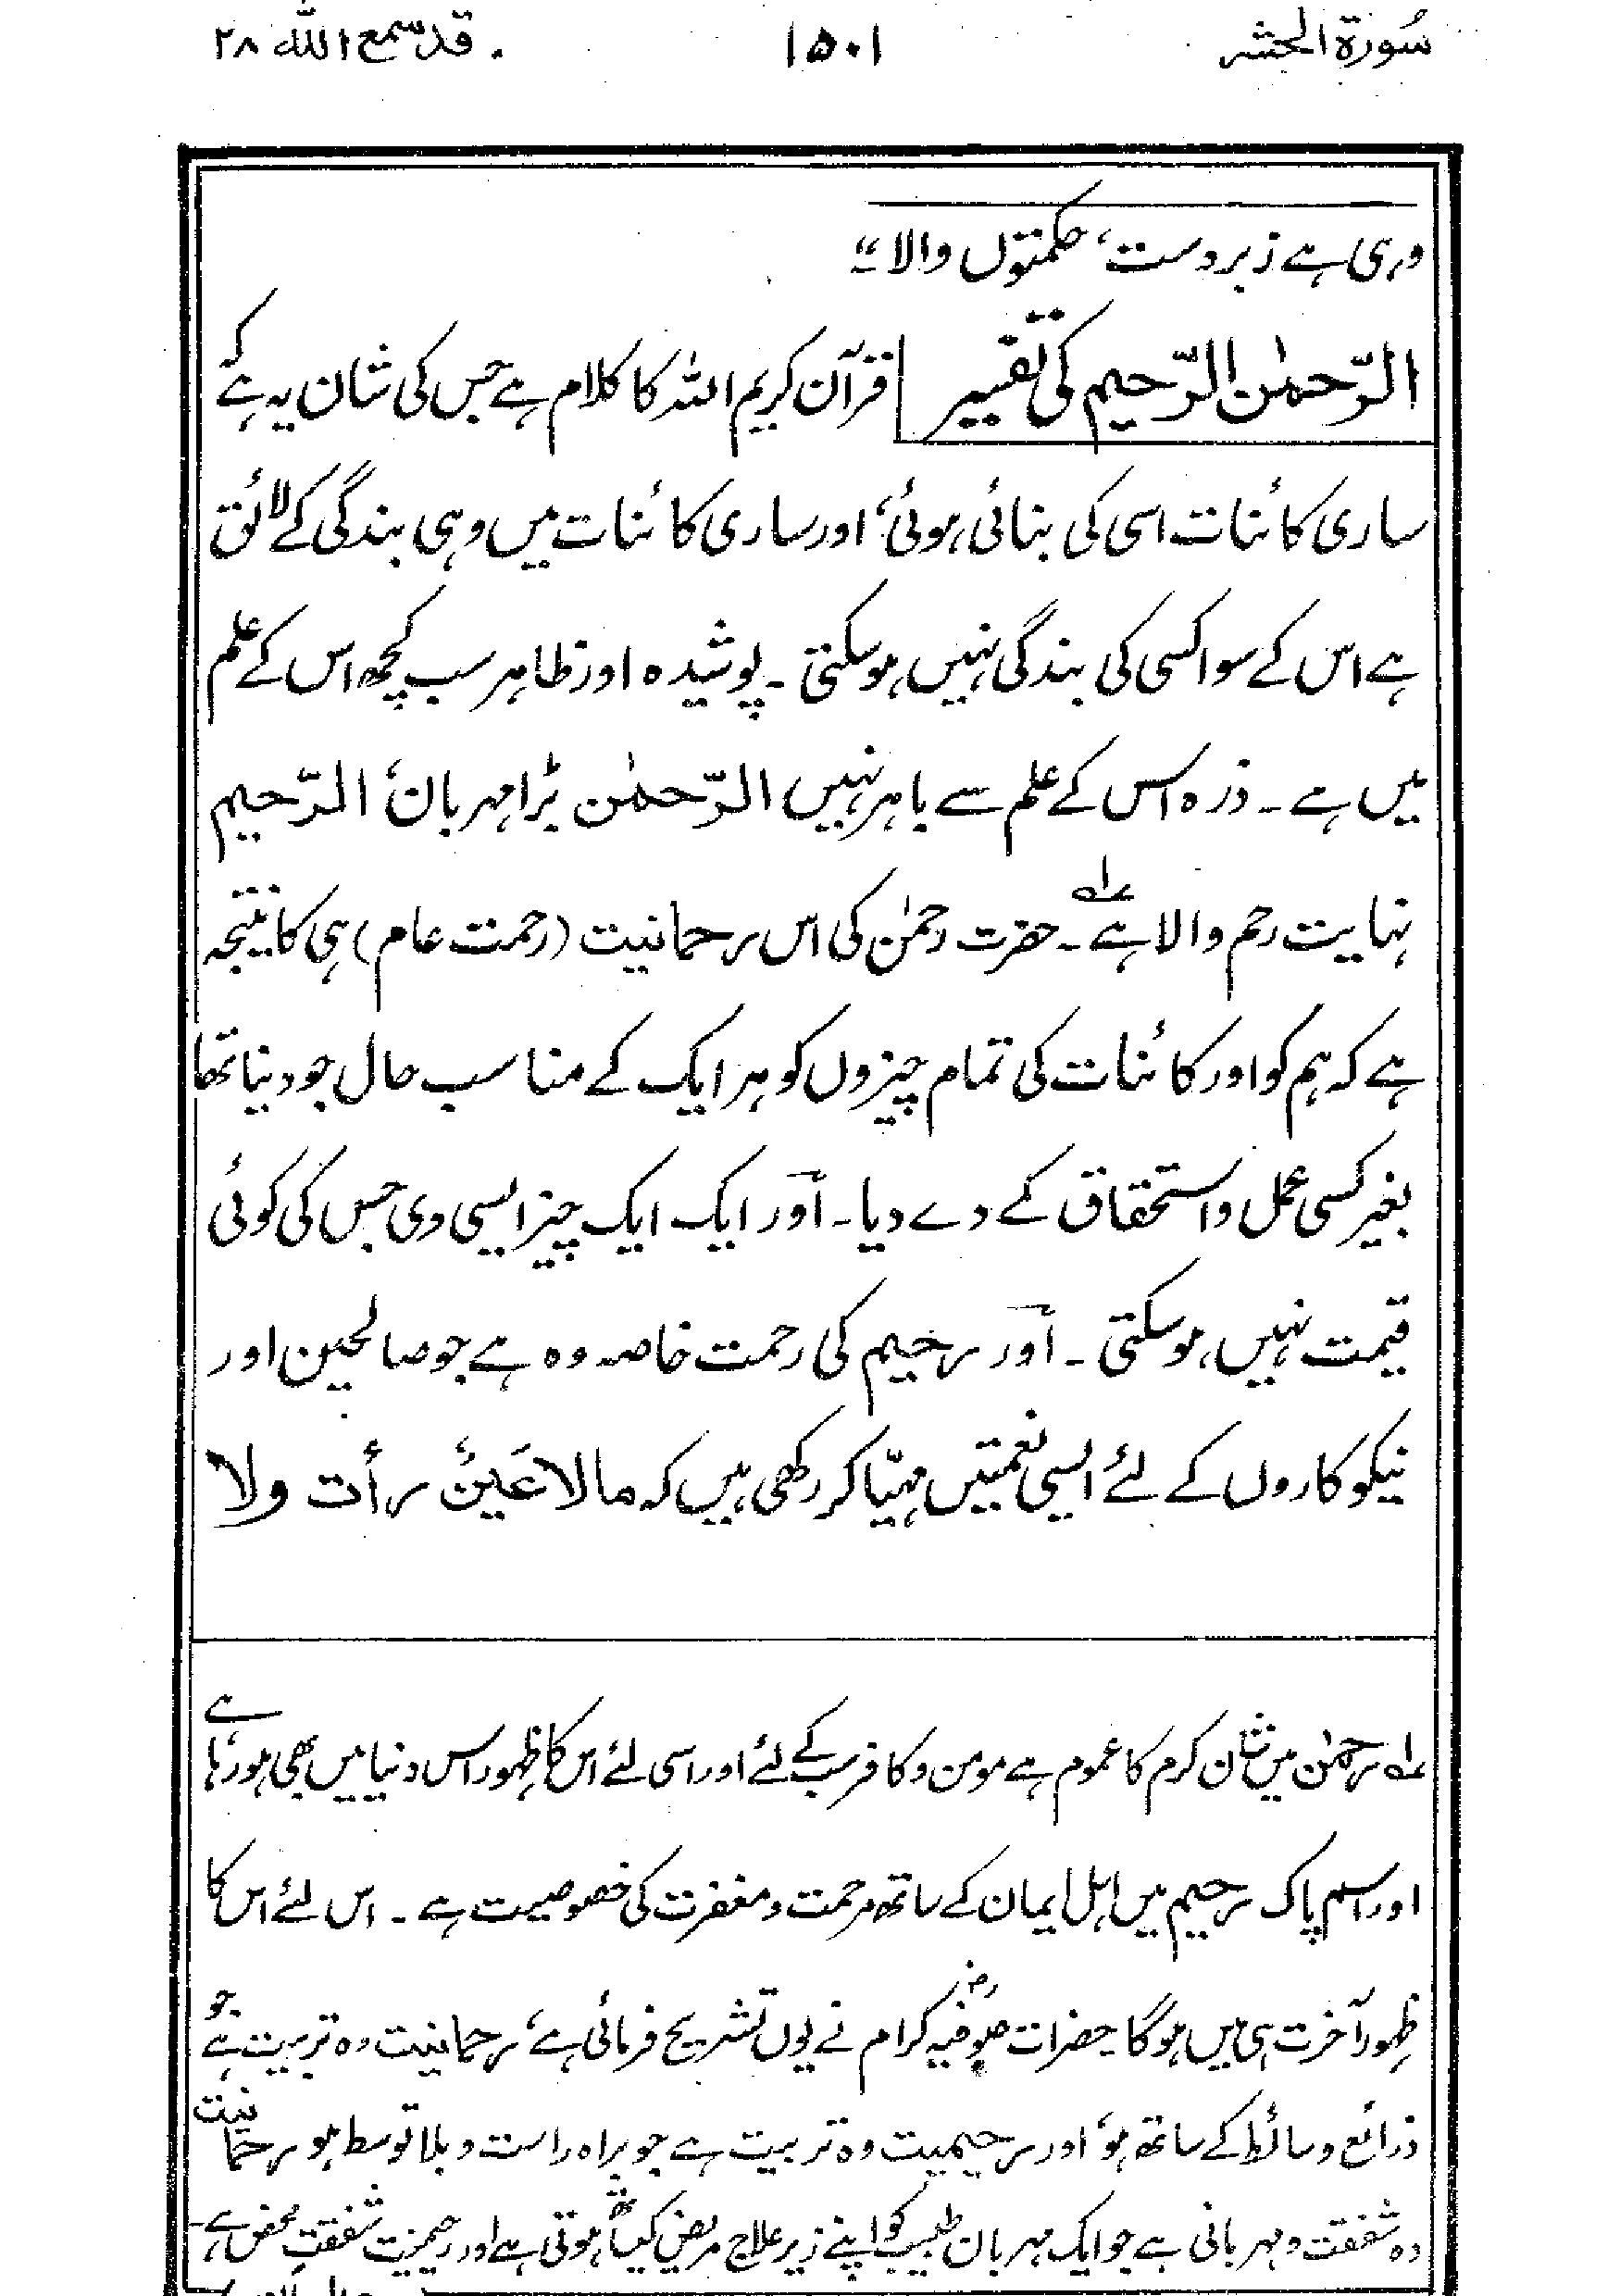 سُورة الحشر ۱۵۰۱ قد سمع اللہ ۲۸
وہی ہے زبردست، حکمتوں والا"
الرّحمٰن الرّحیم کی تفسیر قرآن کریم اللہ کا کلام ہے جس کی شان یہ ہے کہ
ساری کائنات اسی کی بنائی ہوئی، اور ساری کائنات میں وہی بندگی کے لائق
ہے اس کے سوا کسی کی بندگی نہیں ہوسکتی۔ پوشیدہ اور ظاہر سب کچھ اس کے علم
میں ہے۔ ذرہ اس کے علم سے باہر نہیں الرّحمٰن بڑا مہربان، الرّحیم
نہایت رحم والا ہے۔ ۱؎ حضرت رحمٰن کی اس رحمانیت (رحمت عام) ہی کا نتیجہ
ہے کہ ہم کو اور کائنات کی تمام چیزوں کو ہر ایک کے مناسب حال جو دینا تھا
بغیر کسی عمل و استحقاق کے دے دیا۔ اور ایک ایک چیز ایسی دی جس کی کوئی
قیمت نہیں ہوسکتی۔ اور رحیم کی رحمت خاصہ وہ ہے جو صالحین اور
نیکوکاروں کے لئے ایسی نعمتیں مہیّا کر رکھی ہیں کہ مالا عَینٌ رأت ولا
۱؎ رحمٰن میں شان کرم کا عموم ہے مومن و کافر سب کے لئے اور اسی لئے اس کا ظہور اس دنیا میں بھی ہو رہا ہے
اور اسم پاک رحیم میں اہل ایمان کے ساتھ مرحمت و مغفرت کی خصوصیت ہے۔ اس لئے اس کا
ظہور آخرت ہی میں ہوگا حضرات صوفیہ کرام رح نے یوں تشریح فرمائی ہے، رحمانیت وہ تربیت ہے جو
ذرائع وسائط کے ساتھ ہو، اور رحیمیت وہ تربیت ہے جو براہ راست و بلا توسط ہو رحمانیت
وہ شفقت و مہربانی ہے جو ایک مہربان طبیب کو اپنے زیر علاج مریض کیساتھ ہوتی ہے اور رحیمیت شفقتِ محض ہے